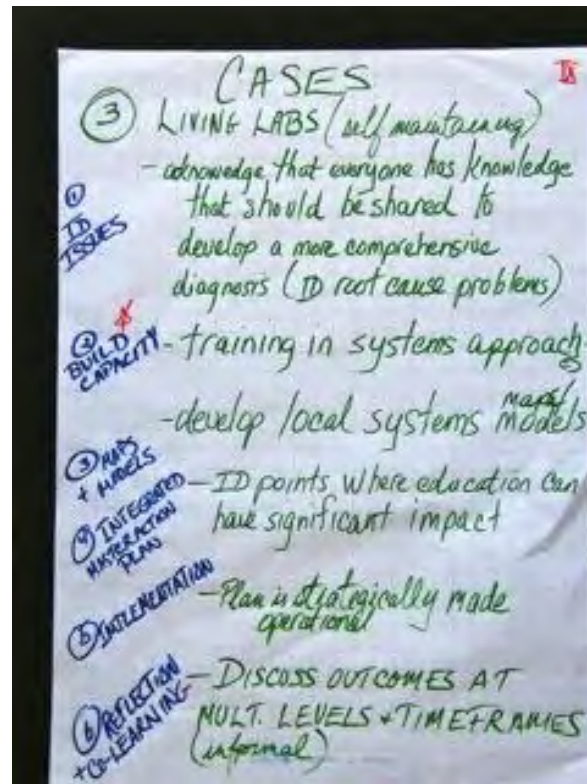 CASES
③ LIVING LABS (self maintaining)
① ID ISSUES
- acknowedge that everyone has knowledge
that should be shared to
develop a more comprehensive
diagnosis (ID root cause problems)
② BUILD CAPACITY
- training in systems approach
- develop local systems maps/
models
③ MAPS + MODELS
④ INTEGRATED
PLAN
- ID points where education can
have significant impact
⑤ IMPLEMENTATION
- Plan is strategically made
operational
⑥ REFLECTION
+ CO-LEARNING
- DISCUSS OUTCOMES AT
MULT. LEVELS + TIMEFRAMES
(informal)